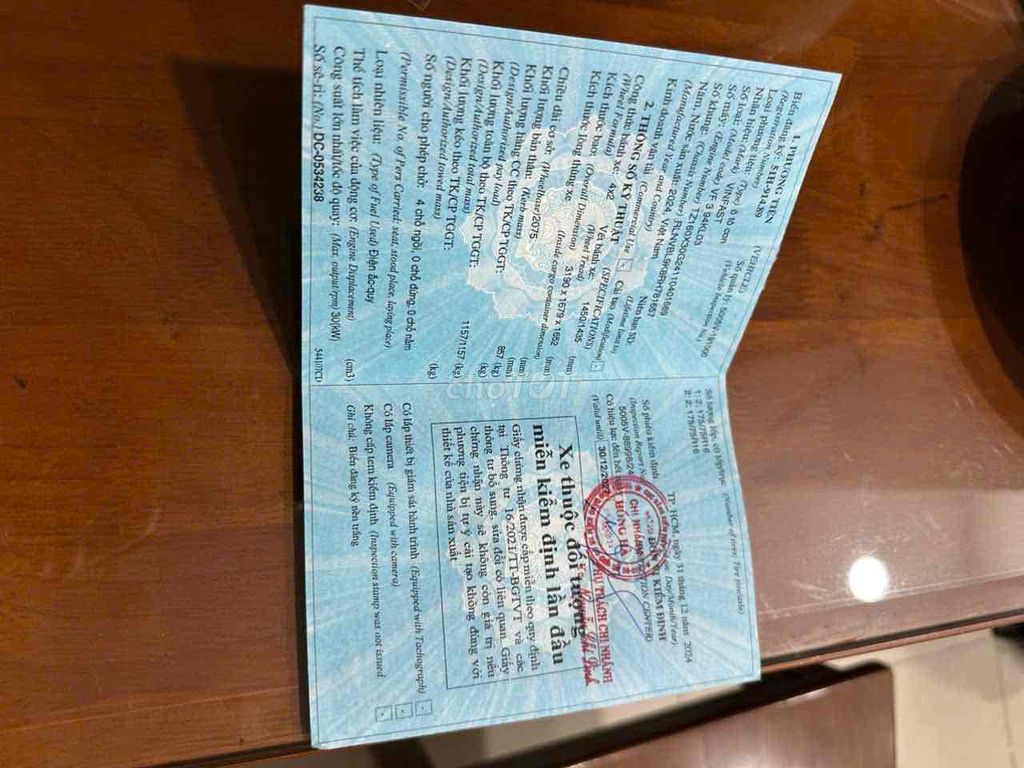 1. PHƯƠNG TIỆN (VEHICLE)
Biển đăng ký: 51H-914.89
(Registration Number)
Số quản lý:
(Vehicle Inspection No.)
Loại phương tiện: (Type) ô tô con
Nhãn hiệu: (Mark) VINFAST
Số loại: (Model code) VF 3 94KL03
Số máy: (Engine Number)
Số khung: (Chassis Number)
Năm, Nước sản xuất: 2024, Việt Nam
(Manufactured Year and Country)
Niên hạn SD:
(Lifetime limit to)
Kinh doanh vận tải (Commercial Use)
Cải tạo (Modification)
2. THÔNG SỐ KỸ THUẬT (SPECIFICATIONS)
Công thức bánh xe: 4x2
(Wheel Formula)
Vết bánh xe: 1450/1435 (mm)
(Wheel Tread)
Kích thước bao: (Overall Dimension) 3190 x 1679 x 1652 (mm)
Kích thước lòng thùng xe (Inside cargo container dimension)
(mm)
Chiều dài cơ sở: (Wheelbase) 2075 (mm)
Khối lượng bản thân: (Kerb mass) 857 (kg)
Khối lượng hàng CC theo TK/CP TGGT: (kg)
(Design/Authorized pay load)
Khối lượng toàn bộ theo TK/CP TGGT: 1157/1157 (kg)
(Design/Authorized total mass)
Khối lượng kéo theo TK/CP TGGT: (kg)
(Design/Authorized towed mass)
Số người cho phép chở: 4 chỗ ngồi, 0 chỗ đứng, 0 chỗ nằm
(Permissible No. of Pers Carried: seat, stood place, laying place)
Loại nhiên liệu: (Type of Fuel Used) Điện ắc-quy
Thể tích làm việc của động cơ: (Engine Displacement) (cm3)
Công suất lớn nhất/tốc độ quay: (Max. output/rpm) 30(kW)
Số sê-ri: (No.) DC-0534238
Số lượng lốp, cỡ lốp/trục (Number of tires; Tire size/axle)
1: 2; 175/75R16
2: 2; 175/75R16
Số phiếu kiểm định
(Inspection Report No.)
Có hiệu lực đến hết ngày
(Valid until) 30/12/2027
TP. HCM, ngày 31 tháng 12 năm 2024
KIỂM ĐỊNH
HỒNG HÀ
Xe thuộc đối tượng
miễn kiểm định lần đầu
Giấy chứng nhận được cấp miễn theo quy định
tại Thông tư 16/2021/TT-BGTVT và các
thông tư bổ sung, sửa đổi có liên quan. Giấy
chứng nhận này sẽ không còn giá trị nếu
phương tiện bị tự ý cải tạo không đúng với
thiết kế của nhà sản xuất
Có lắp thiết bị giám sát hành trình (Equipped with Tachograph)
Có lắp camera (Equipped with camera)
Không cấp tem kiểm định (Inspection stamp was not issued
Ghi chú: Biển đăng ký nền trắng
chợTỐT